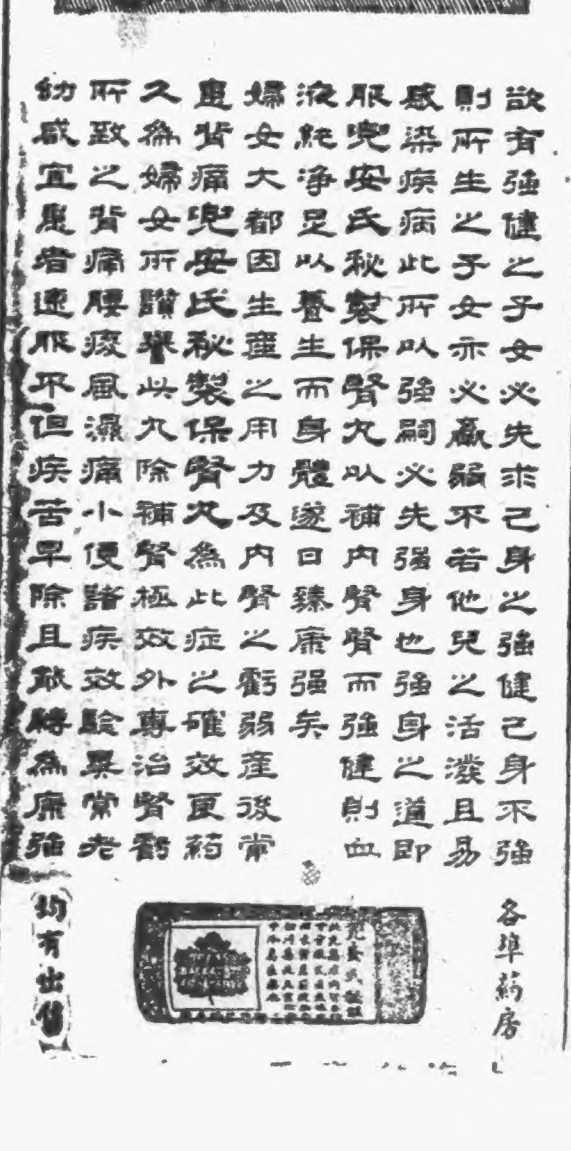 欲有強健之子女必先求己身之強健己身不強
則所生之子女亦必羸弱不若他兒之活潑且易
感染疾病此所以強嗣必先強身也強身之道即
服兜安氏秘製保腎丸以補內腎腎而強健則血
液純淨足以養生而身體遂日臻康強矣
婦女大都因生產之用力及內腎之虧弱產後常
患背痛兜安氏秘製保腎丸為此症之確效良药
久為婦女所讚譽此丸除補腎極效外專治腎虧
所致之背痛腰痠風濕痛小便諸疾效驗異常老
幼咸宜患者速服不但疾苦早除且敢轉為康強
各埠药房
均有出售